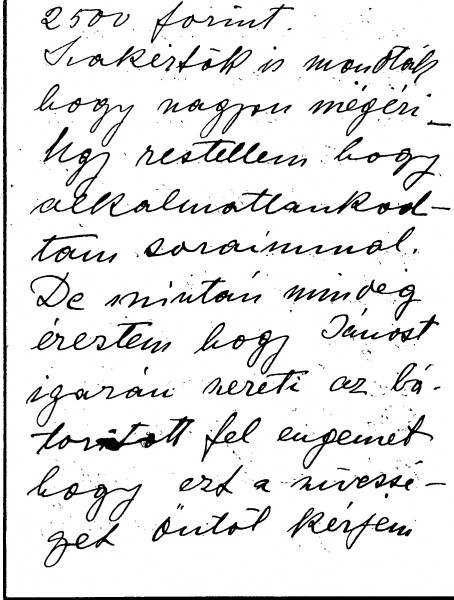 2500 forint.
Szakértők is mondták
hogy nagyon mégéri_
Úgy restellem hogy
alkalmatlankod-
tam soraimmal.
De miután mindég
éreztem hogy Jánost
igazán szereti az bá-
torított fel engemet
hogy ezt a szívessé-
get öntöl kérjem